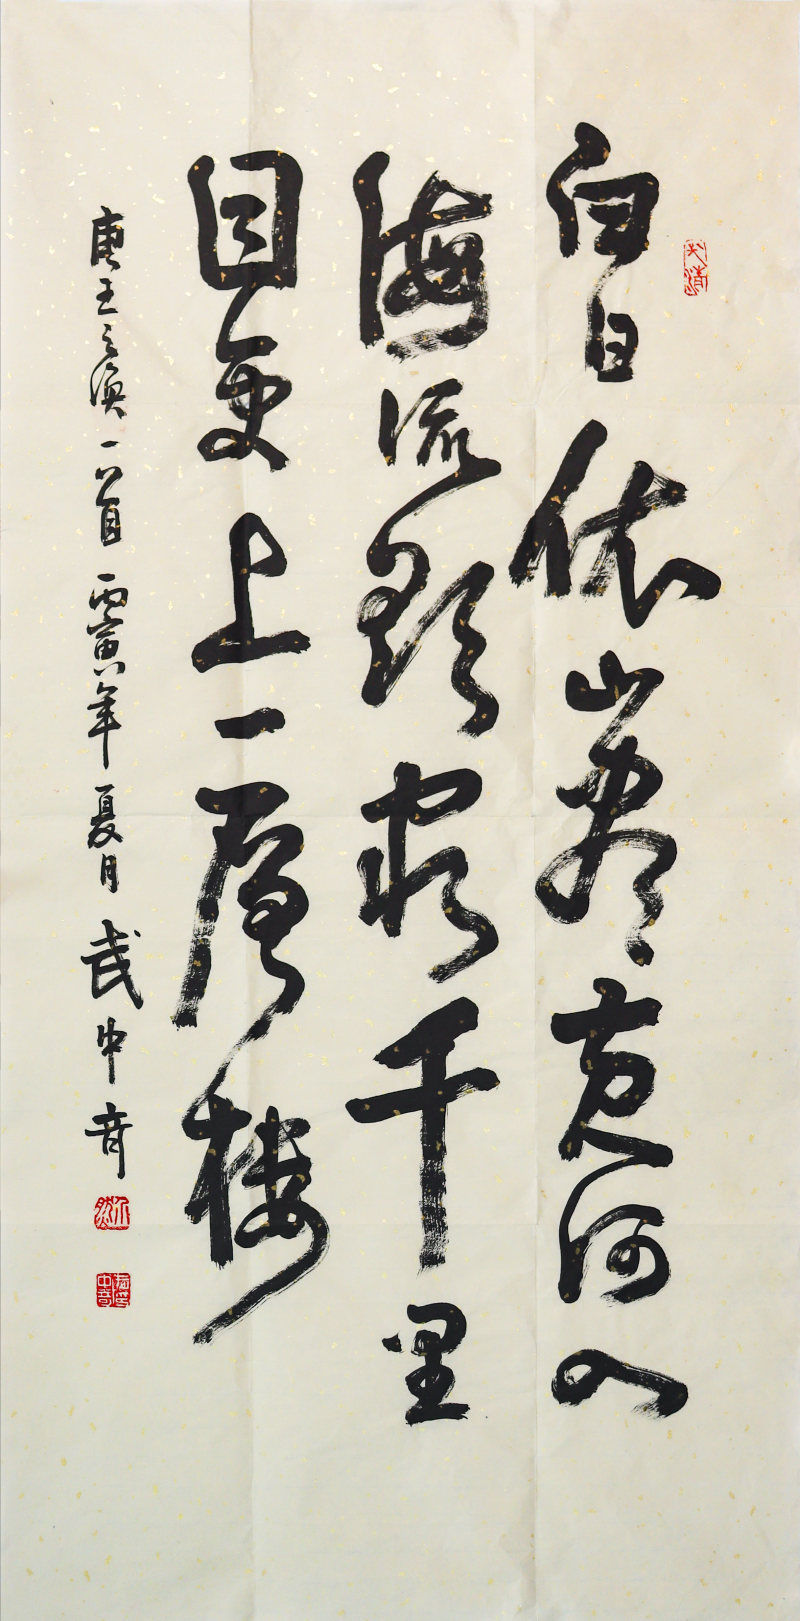 白日依山盡黃河入
海流欲窮千里
目更上一層樓
唐王之渙一首 丙寅年夏月 武中奇